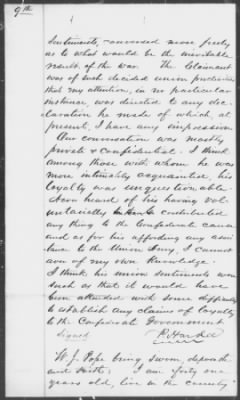 9th
Sentiments, conversed more freely
as to what would be the inevitable
result of the war. The Claimant
was of such decided union proclivities
that my attention, in no particular
instance was directed to any dec-
laration he made of which, at
present, I have any impression.
Our conversation was mostly
private & confidential. I think
among those with whom he was
more intimately acquainted, his
loyalty was unquestionable.
Never heard of his having vol-
untarily contributed
any thing to the Confederate cause
and as for his affording any assis-
tance to the Union Army I cannot
aver of my own knowledge.
I think his union sentiments were
such as that it would have
been attended with some difficulty
to establish any claims of loyalty
to the Confederate Government
Signed
W. J. Pope being sworn, deposeth
and saith; I am forty one
years old, live in the county